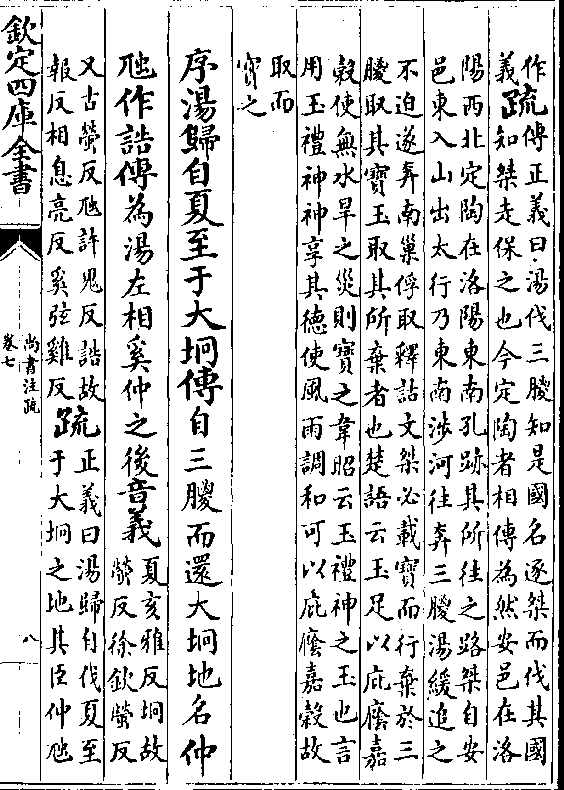 作
義疏傳正義曰湯伐三朡知是國名逐桀而伐其國
知桀走保之也今定陶者相傳為然安邑在洛
陽西北定陶在洛陽東南孔跡其所往之路桀自安
邑東入山出太行乃東南渉河往奔三朡湯緩追之
不迫遂奔南巢俘取釋詁文桀必載寶而行棄於三
朡取其寶玉取其所棄者也楚語云玉足以庇廕嘉
穀使無水旱之災則寶之韋昭云玉禮神之玉也言
用玉禮神神享其德使風雨調和可以庇廕嘉穀故
取而
寶之
序湯歸自夏至于大坰傳自三朡而還大坰地名仲
虺作誥傳為湯左相奚仲之後音義夏亥雅反坰故
螢反徐欽螢反
又古螢反虺許鬼反誥故
報反相息亮反奚弦雞反疏正義曰湯歸自伐夏至
于大坰之地其臣仲虺
欽定四庫全書
尚書注疏
卷七
八